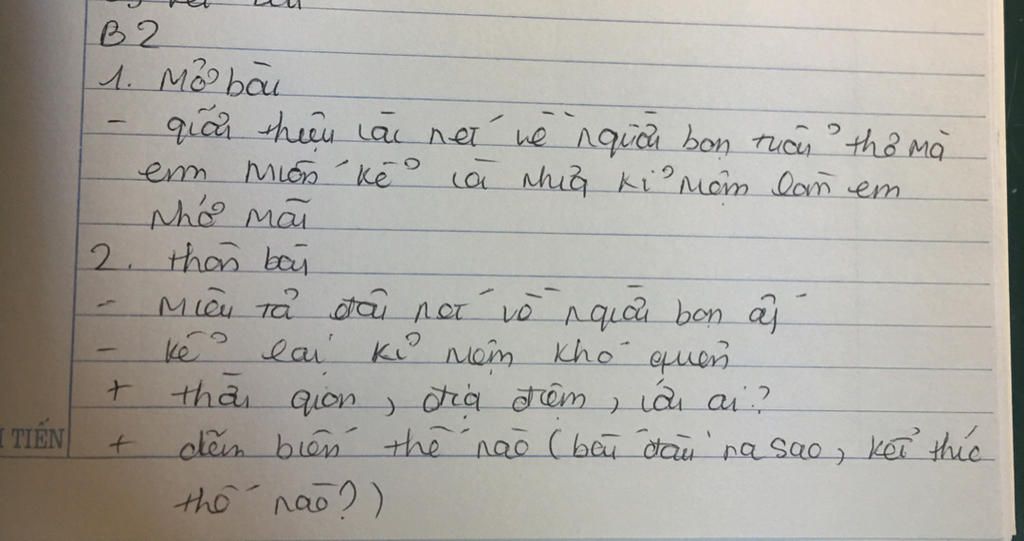 B2
1. Mở bài
- giới thiệu vài nét về người bạn tuổi thơ mà
em muốn kể và những kỉ niệm làm em
nhớ mãi
2. thân bài
- Miêu tả đôi nét về người bạn ấy
- kể lại kỉ niệm khó quên
+ thời gian, địa điểm, với ai?
TIẾN + diễn biến thế nào (bắt đầu ra sao, kết thúc
thế nào?)